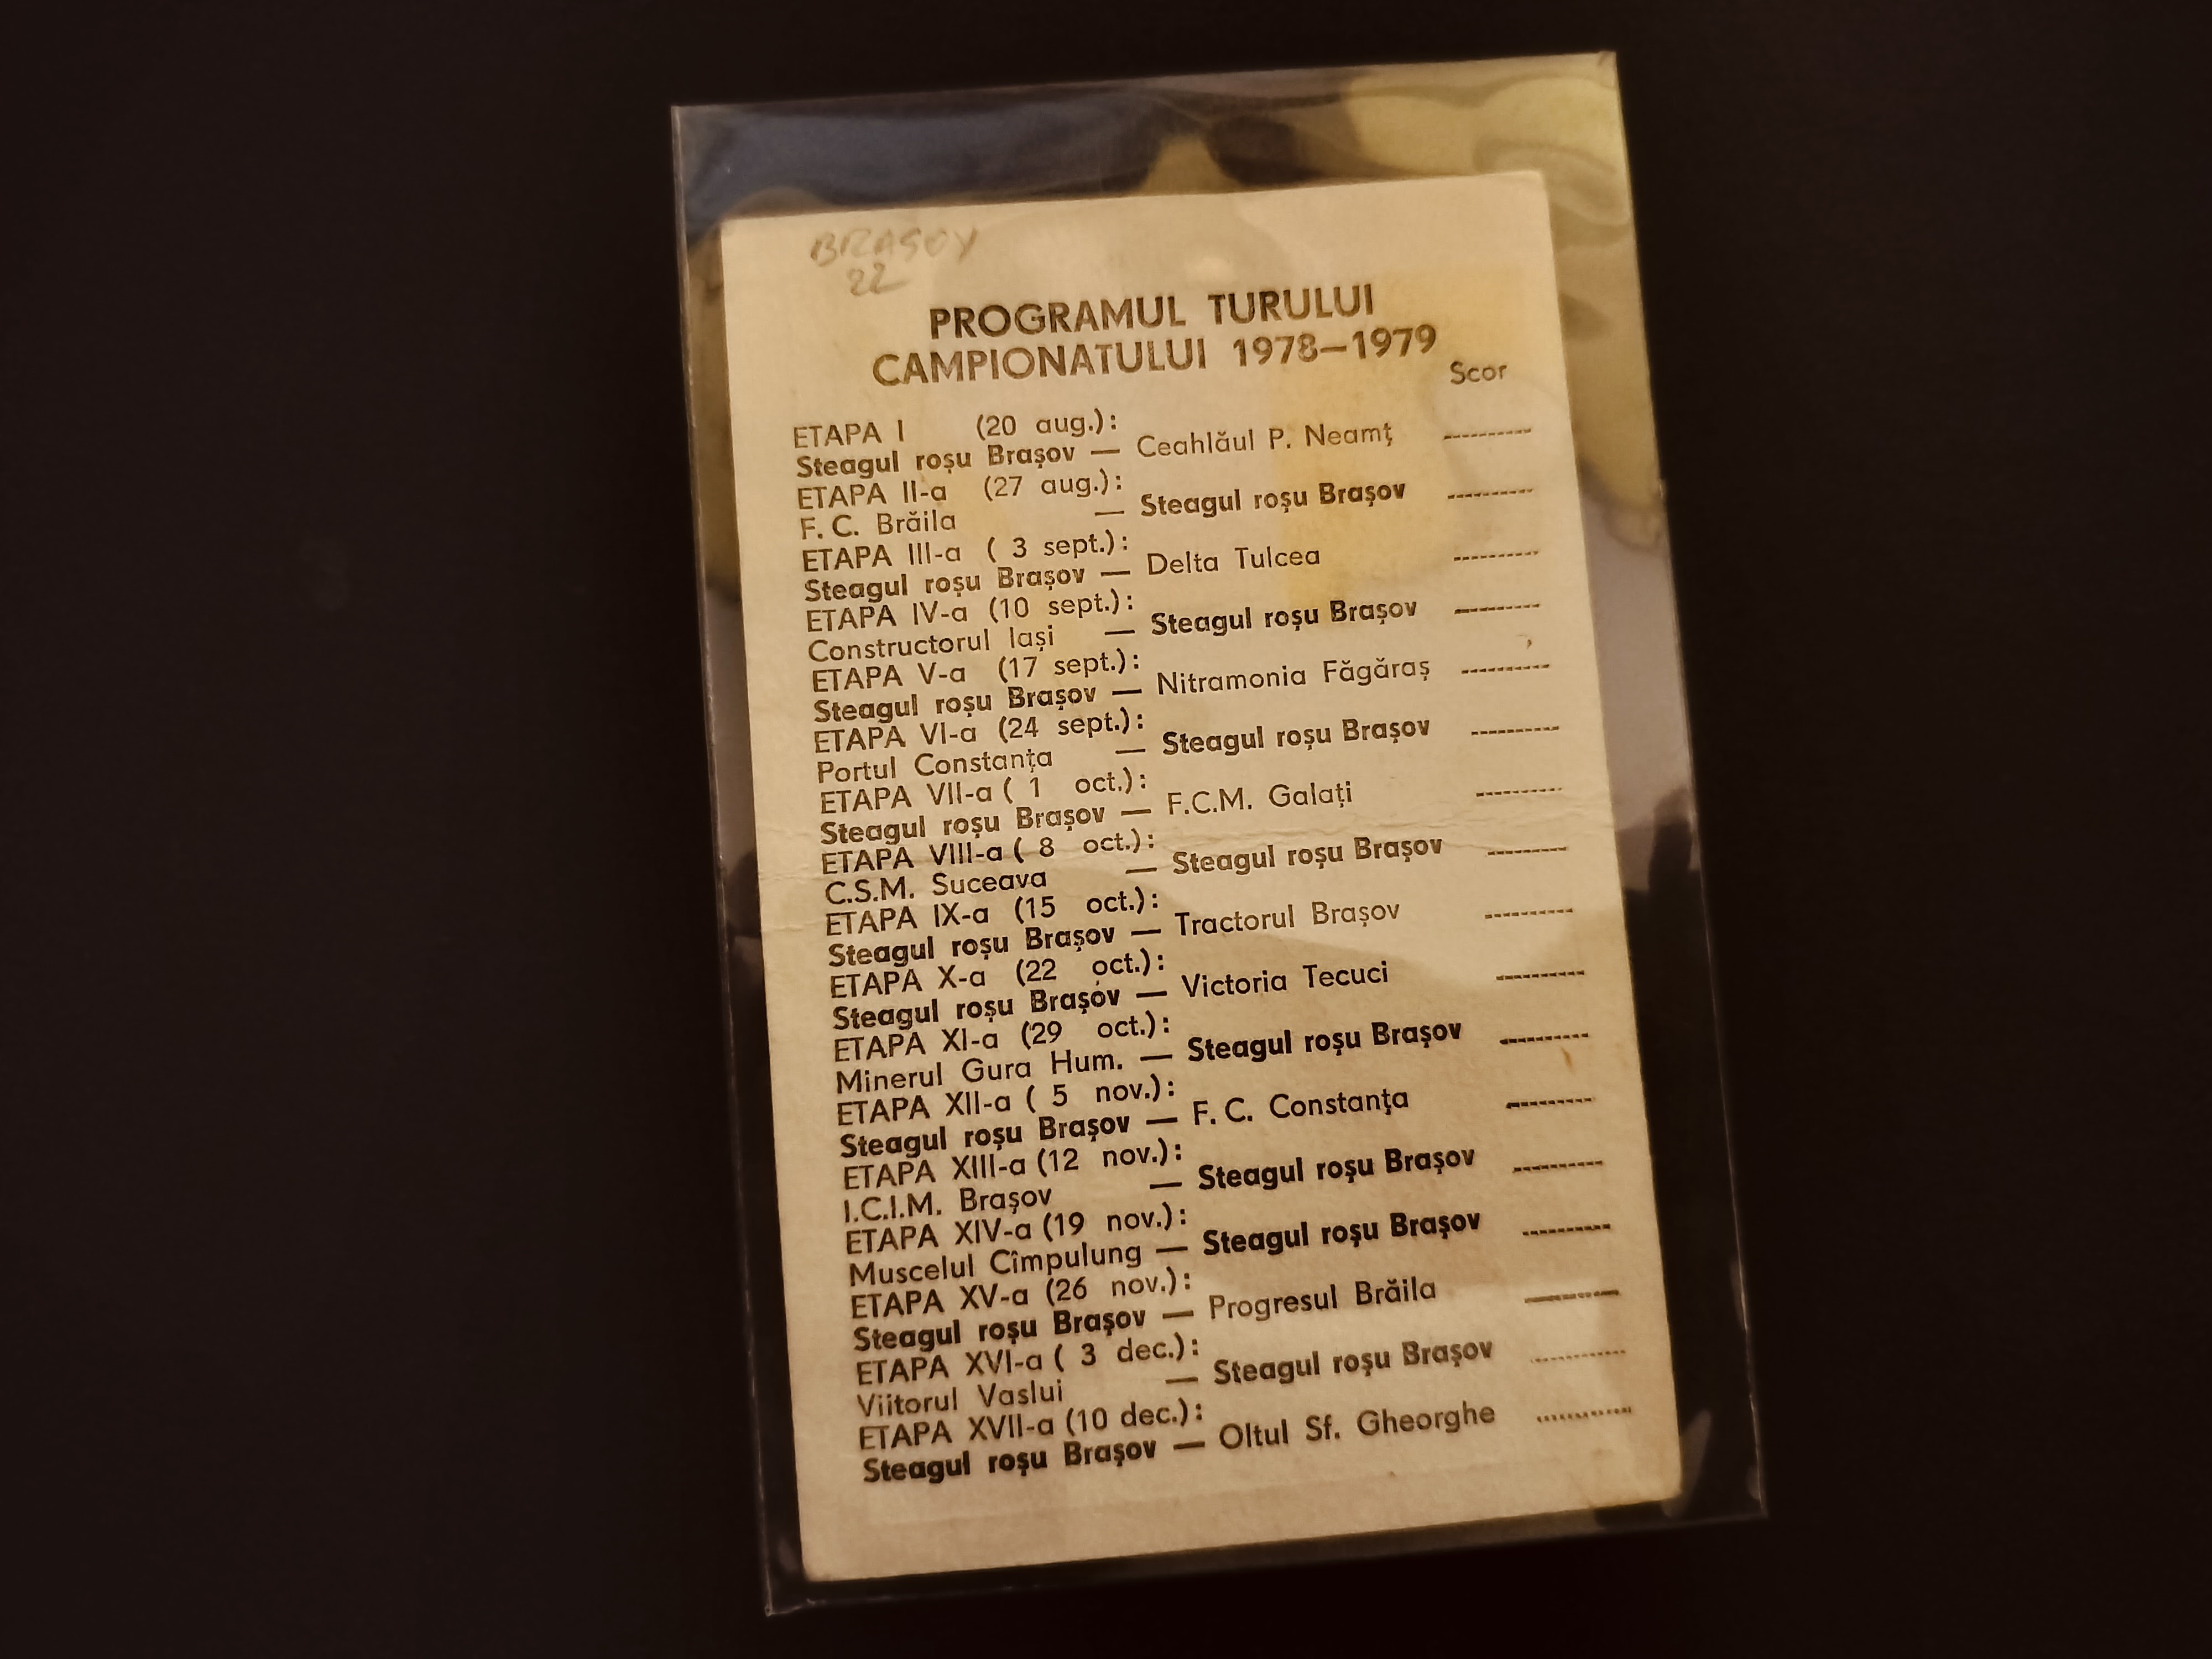 BRASOV
22
PROGRAMUL TURULUI
CAMPIONATULUI 1978–1979
Scor
ETAPA I (20 aug.):
Steagul roşu Braşov — Ceahlăul P. Neamţ ----------
ETAPA II-a (27 aug.):
F. C. Brăila — Steagul roşu Braşov ----------
ETAPA III-a ( 3 sept.):
Steagul roşu Braşov — Delta Tulcea ----------
ETAPA IV-a (10 sept.):
Constructorul Iaşi — Steagul roşu Braşov ----------
ETAPA V-a (17 sept.):
Steagul roşu Braşov — Nitramonia Făgăraş ----------
ETAPA VI-a (24 sept.):
Portul Constanţa — Steagul roşu Braşov ----------
ETAPA VII-a ( 1 oct.):
Steagul roşu Braşov — F.C.M. Galaţi ----------
ETAPA VIII-a ( 8 oct.):
C.S.M. Suceava — Steagul roşu Braşov ----------
ETAPA IX-a (15 oct.):
Steagul roşu Braşov — Tractorul Braşov ----------
ETAPA X-a (22 oct.):
Steagul roşu Braşov — Victoria Tecuci ----------
ETAPA XI-a (29 oct.):
Minerul Gura Hum. — Steagul roşu Braşov ----------
ETAPA XII-a ( 5 nov.):
Steagul roşu Braşov — F. C. Constanţa ----------
ETAPA XIII-a (12 nov.):
I.C.I.M. Braşov — Steagul roşu Braşov ----------
ETAPA XIV-a (19 nov.):
Muscelul Cîmpulung — Steagul roşu Braşov ----------
ETAPA XV-a (26 nov.):
Steagul roşu Braşov — Progresul Brăila ----------
ETAPA XVI-a ( 3 dec.):
Viitorul Vaslui — Steagul roşu Braşov ----------
ETAPA XVII-a (10 dec.):
Steagul roşu Braşov — Oltul Sf. Gheorghe ----------